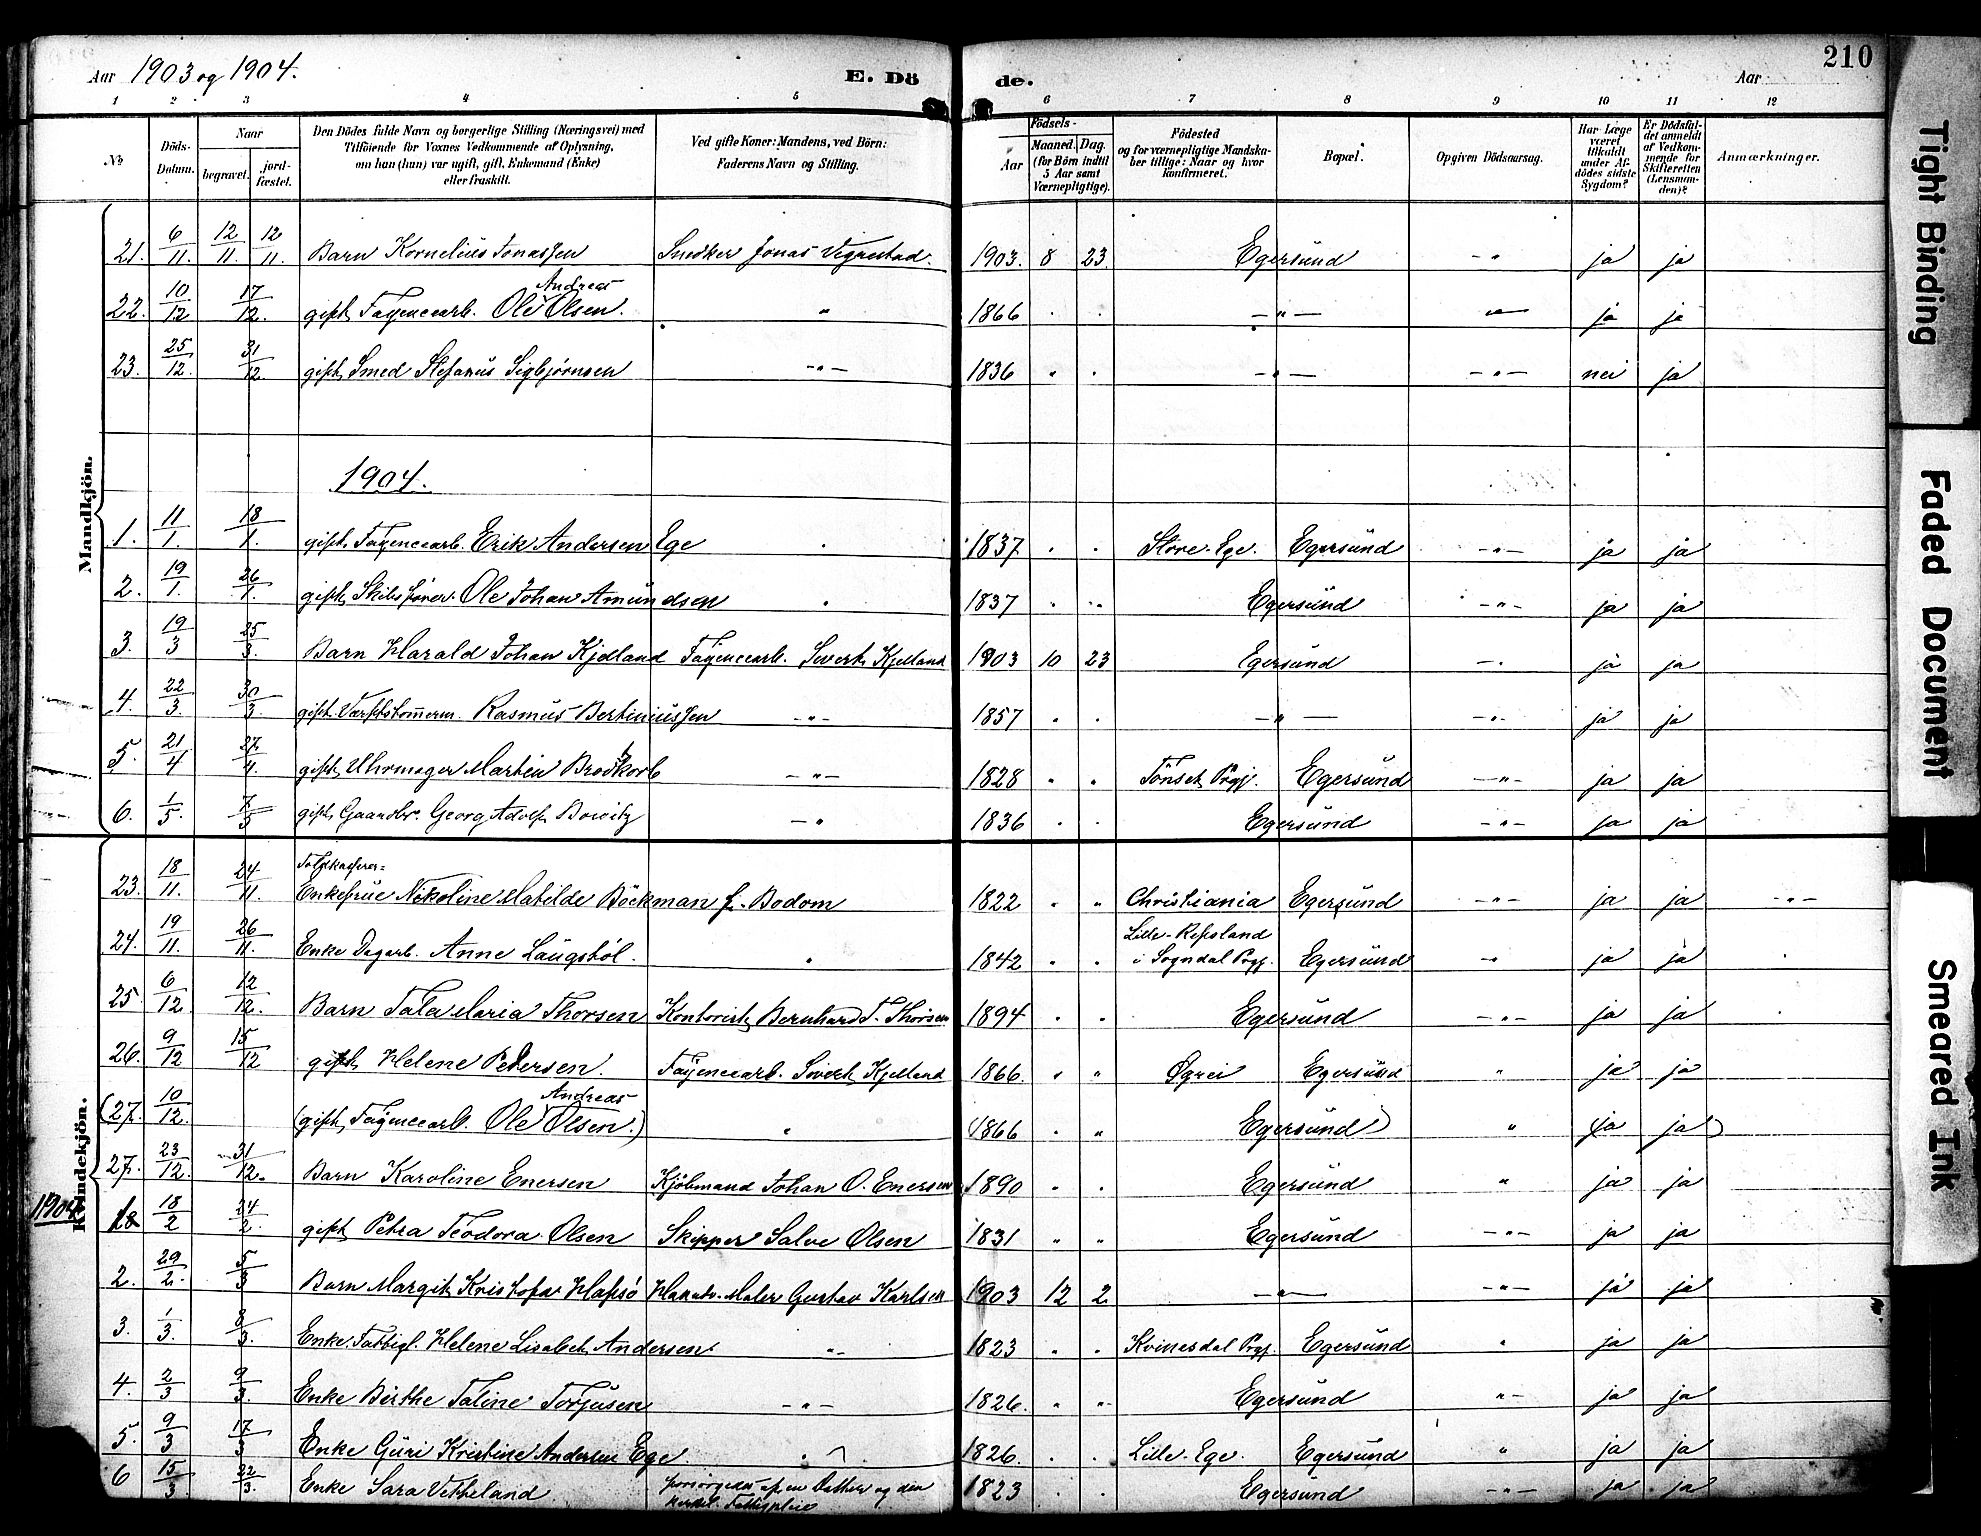 Aar 1903 og 1904. E. Dö de. Aar 210
1 2 3 4 5 6 7 8 9 10 11 12
No
Döds-Datum.
Naar
begravet.
jordfæstet.
Den Dödes fulde Navn og borgerlige Stilling (Næringsvei) med Tilföiende for Voxnes Vedkommende af Oplysning, om han (hun) var ugift, gift, Enkemand (Enke) eller fraskilt.
Ved gifte Koner: Mandens, ved Börn: Faderens Navn og Stilling.
Födsels-
Aar
Maaned. Dag.
(for Börn indtil 5 Aar samt Værnepligtige).
Födested og for værnepligtige Mandskaber tillige: Naar og hvor konfirmeret.
Bopæl.
Opgiven Dödsaarsag.
Har Læge været tilkaldt under Afdödes sidste Sygdom?
Er Dödsfaldet anmeldt af Vedkommende for Skifteretten (Lensmanden)?
Anmærkninger.
Mandkjön.
21. 6/11. 12/11. 12/11. Barn Kornelius Jonassen Snedker Jonas Vigrestad. 1903. 8 23. Egersund - " ja ja
22. 10/12 17/12. gift Fayencearb. Ole Andreas Olsen. " 1866 . . - " - " ja ja
23. 25/12. 31/12 gift Smed Stefanus Sigbjørnsen - " - 1836 " . - " - - " - nei ja
1904.
1. 11/1. 18/1. gift. Fayencearb. Erik Andersen Ege . 1837. " . Store-Ege. Egersund - " - ja ja
2. 19/1. 26/1. gift Skibsfører. Ole Johan Amundsen . 1837 " " Egersund - " - ja ja
3. 19/3 25/3. Barn Harald Johan Kjelland Fayencearb. Sivert Kjelland 1903 10 23 Egersund - . ja ja
4. 22/3. 30/3. gift Værftstømerm. Rasmus Bertiniussen - " - 1857 " . - " - - " - ja ja
5. 21/4 27/4. gift Uhrmager Martin Brodkorb - " - 1828 " " Tönset Prgj. Egersund - " - ja ja
6. 1/5. 7/5 gift Gaardbr. Georg Adolf Bowitz - " 1836 . . Egersund - " - ja ja
Kvindekjön.
23. 18/11. 24/11. Toldkasserer-
Enkefrue Nikoline Matilde Böckman f. Bodom 1822 " " Christiania Egersund - " - ja ja - " -
24. 19/11. 26/11. Enke Dagarb. Anne Laugstöl. " 1842 " " Lille-Refsland
i Sogndal Prgj. Egersund - " ja ja
25. 6/12 12/12. Barn Tala Maria Thorsen Kontorist Bernhard T. Thorsen 1894 " " Egersund - " - ja ja
26. 9/12 15/12 gift Helene Pedersen. Fayencearb. Sivert Kjelland 1866. " " Øgrei Egersund " ja ja
(27. 10/12. (gift, Fayencearb. Ole Andreas Olsen.) " (1866 " " Egersund) " ja ja)
27. 23/12. 31/12. Barn Karoline Enersen Kjöbmand Johan O. Enersen 1890 " . Egersund " ja ja
1904. 1. 18/2 24/2. gift Petra Teodora Olsen Skipper Salve Olsen 1831 " " Egersund - " - ja ja
2. 29/2. 5/3 Barn Margit Kristofa Hafsö Haandv. Maler Gustav Karlsen 1903 12 2 - " - - " - ja ja
3. 1/3. 8/3. Enke. Fattigl. Helene Lisabet Andersen " - 1823 " . Kvinesdal Prgj. Egersund " ja ja
4. 2/3 9/3. Enke Birthe Taline Torjusen - " - 1826. " " Egersund " - ja ja
5. 9/3 17/3 Enke Guri Kristine Andersen Ege " 1826. . . Lille-Ege. Egersund " ja ja
6 15/3. 22/3. Enke Sara Vetteland forsörgedes af en Datter og den
Fattigpleie 1823 . . Egersund - " - ja ja
Tight Binding
Faded Document
Smeared Ink